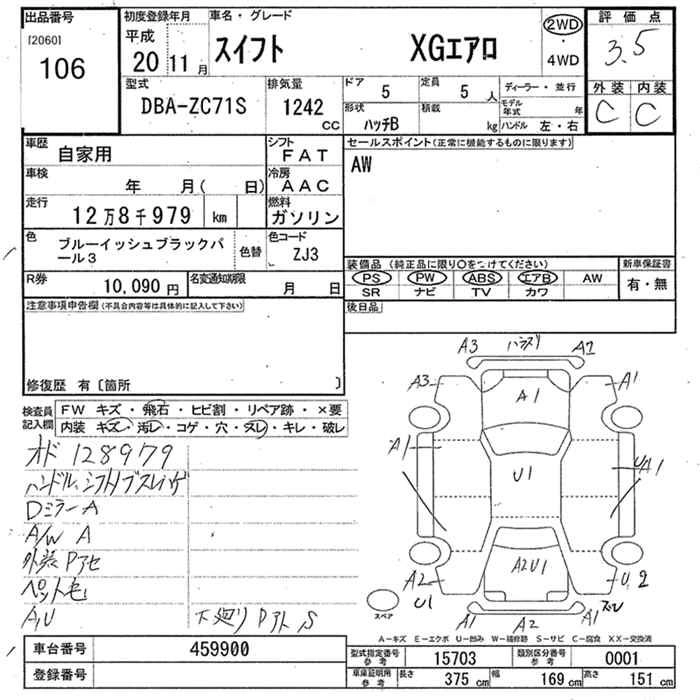 出品番号 初度登録年月 車名・グレード 2WD 評価点
[2060] 平成 スイフト XGエアロ 3.5
106 20 11月 4WD
型式 排気量 ドア 5 定員 5人 ディーラー・並行 外装 内装
DBA-ZC71S 1242 CC 形状 ハッチB 積載 kg モデル年式 年 C C
ハンドル 左・右
車歴 自家用 シフト FAT セールスポイント(正常に機能するものに限ります)
車検 年 月( 日) 冷房 AAC AW
走行 12万8千979 km 燃料 ガソリン
色 ブルーイッシュブラックパール3 色替 色コード ZJ3
装備品(純正品に限り○をつけてください) 新車保証書
R券 10,090円 名変通知期限 月 日 PS PW ABS エアB AW 有・無
SR ナビ TV カワ
注意事項申告欄(不具合内容等は具体的に記入して下さい) 後日品
修復歴 有〔箇所 〕
検査員記入欄 FW キズ・飛石・ヒビ割・リペア跡・×要
内装 キズ・汚レ・コゲ・穴・スレ・キレ・破レ
オド 128979
ハンドル、シフトノブスレハゲ
Dミラー A
A/W A
外装 Pアセ
ペット毛
A,U 下廻り Pアト S
A3 A2
A3 A1 A1
A1 U1 UA1
A2 A2U1 U2
U1 A1 A2 A1
スペア
A-キズ E-エクボ U-凹み W-補修跡 S-サビ C-腐食 XX-交換済
車台番号 459900 型式指定番号 参考 15703 類別区分番号 参考 0001
登録番号 車庫証明用 参考 長さ 375cm 幅 169cm 高さ 151cm